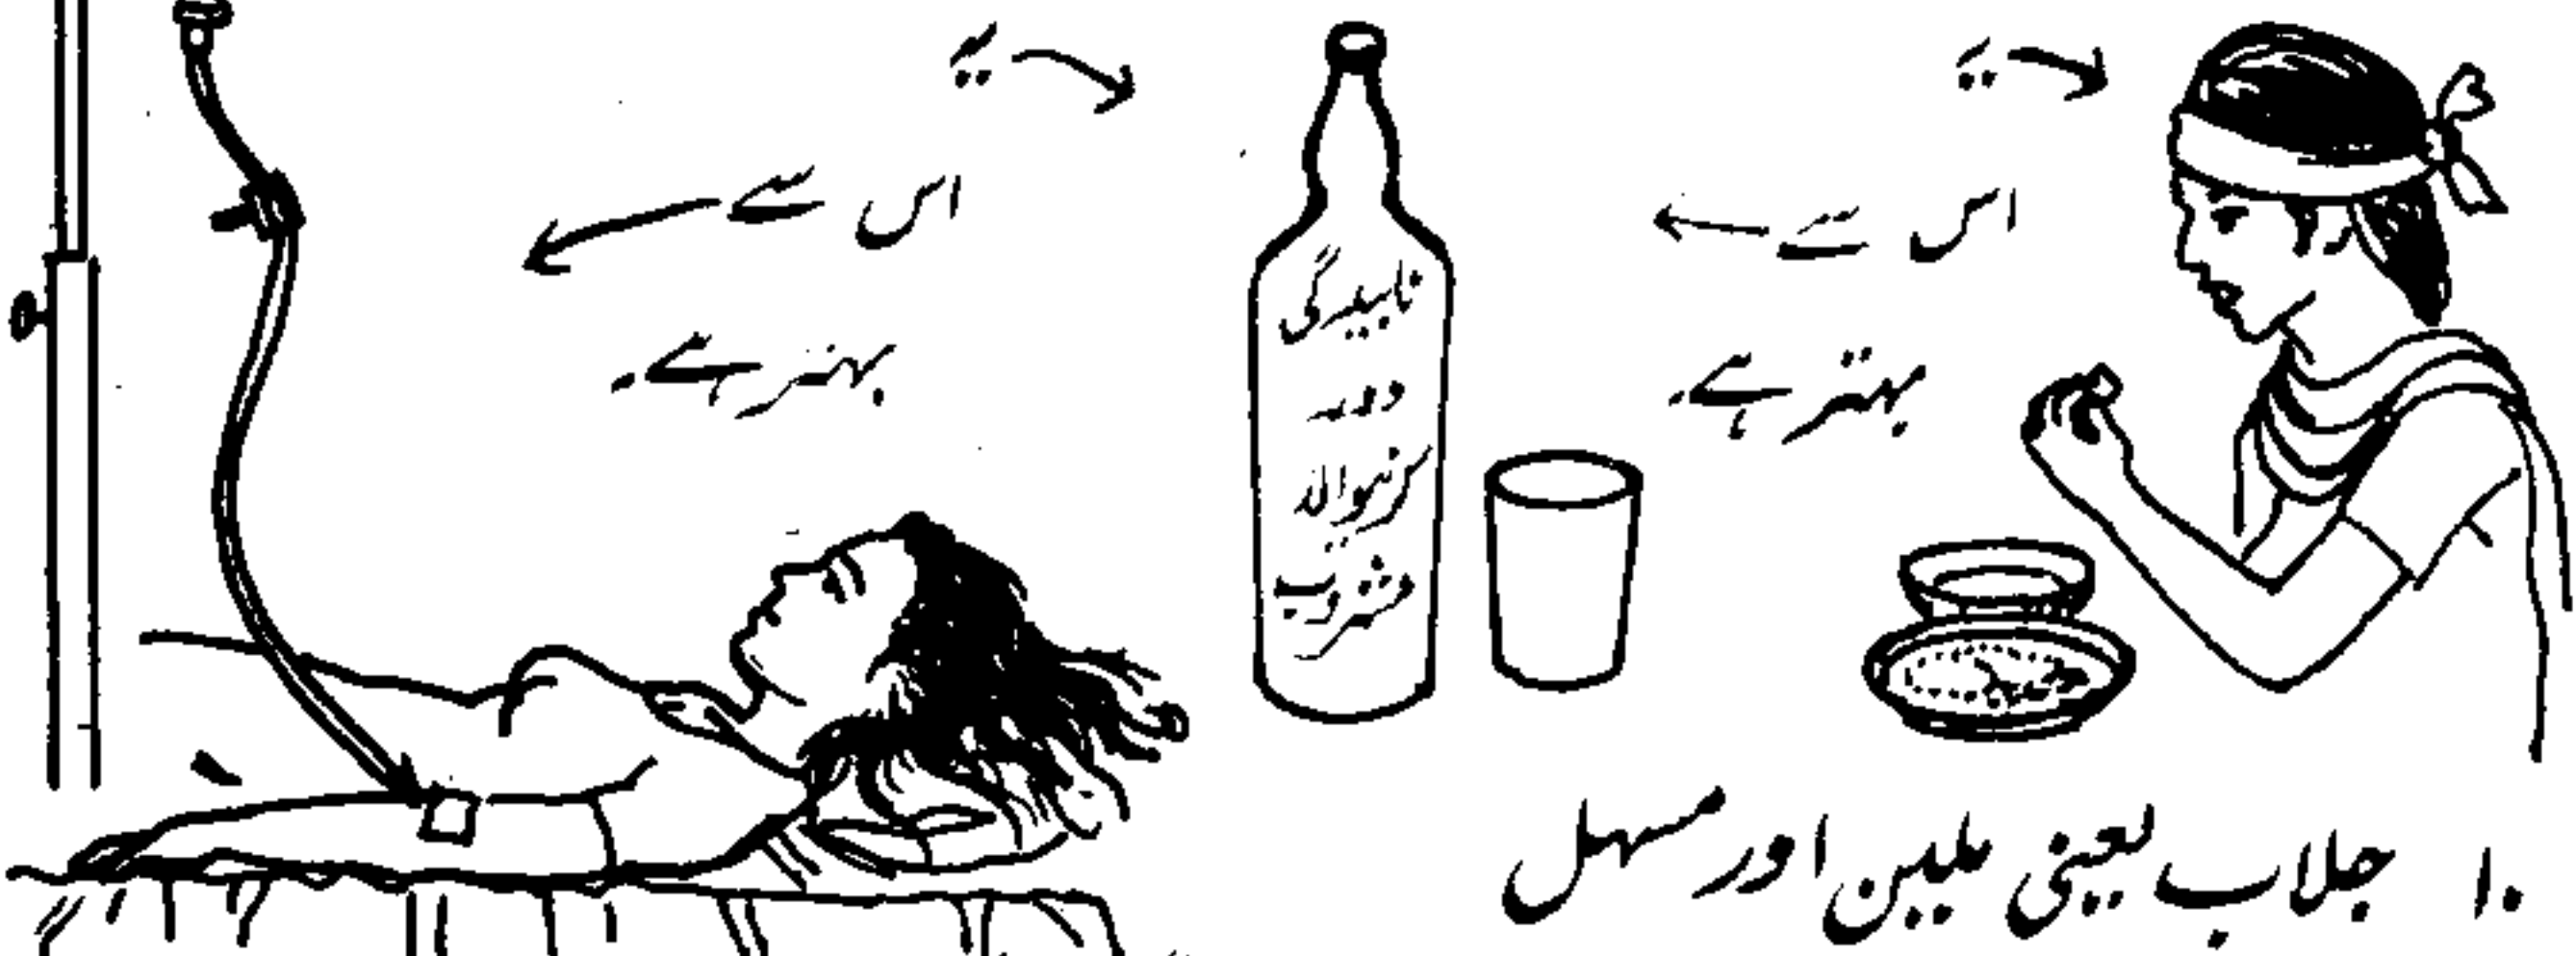 یہ
اس سے
بہتر ہے۔
نابیدگی
دور
کرنیوالا
مشروب
یہ
اس سے
بہتر ہے۔
۱۰ جلاب یعنی ملین اور مسہل